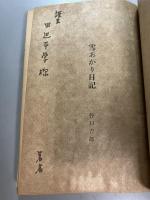 雪あかり日記
谷口吉郎
謹呈
田辺平學様
著者